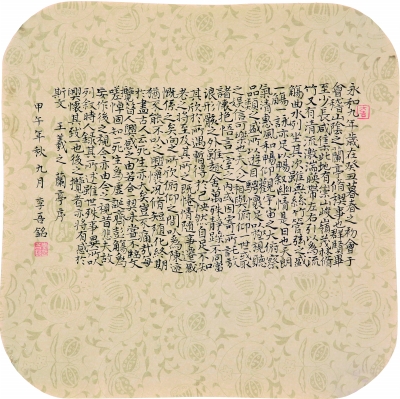 永和九年歲在癸丑暮春之初會于
會稽山陰之蘭亭脩禊事也群賢畢
至少長咸集此地有崇山峻領茂林脩
竹又有清流激湍映帶左右引以為流
觴曲水列坐其次雖無絲竹管弦之盛
一觴一詠亦足以暢敘幽情是日也天朗
氣清惠風和暢仰觀宇宙之大俯察
品類之盛所以遊目騁懷足以極視聽
之娛信可樂也夫人之相與俯仰一世或取
諸懷抱悟言一室之內或因寄所託放
浪形骸之外雖趣舍萬殊靜躁不同當
其欣於所遇暫得於己快然自足不知
老之將至及其所之既倦情隨事遷感
慨係之矣向之所欣俯仰之間以為陳迹
猶不能不以之興懷況脩短隨化終期
於盡古人云死生亦大矣豈不痛哉每
攬昔人興感之由若合一契未嘗不臨文
嗟悼固知死生為虛誕齊彭殤為
妄作後之視今亦由今之視昔悲夫故
列敘時人錄其所述雖世殊事異所以
興懷其致一也後之攬者亦將有感於
斯文 王羲之 蘭亭序
甲午年秋九月 李春銘